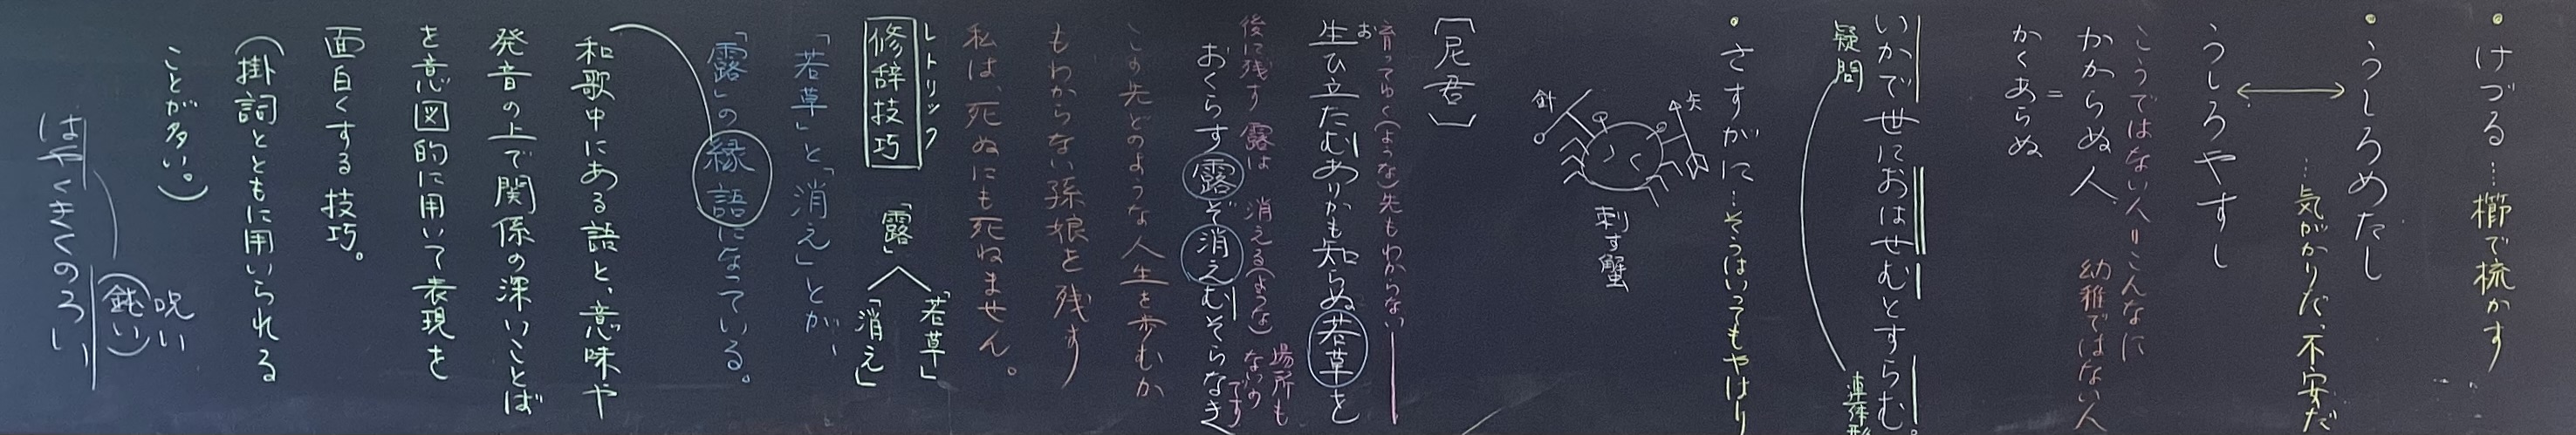 ・けづる…櫛で梳かす
・うしろめたし
…気がかりだ、不安だ
うしろやすし
こうではない人=こんなに
かからぬ人 幼稚ではない人
=
かくあらぬ
いかで世におはせむとすらむ。
疑問
連体形
・さすがに…そうはいってもやはり
矢
針
刺す蟹
〔尼君〕
育ってゆく(ような)先もわからない
お
生ひ立たむありかも知らぬ若草を
後に残す 露は 消える(ような) 場所も
ないの
です
おくらす露ぞ消えむそらなき
この先どのような人生を歩むか
もわからない孫娘を残す
私は、死ぬにも死ねません。
レトリック
修辞技巧
「露」
「若草」
「消え」
「若草」と「消え」とが、
「露」の縁語になっている。
和歌中にある語と、意味や
発音の上で関係の深いことば
を意図的に用いて表現を
面白くする技巧。
(掛詞とともに用いられる
ことが多い。)
呪い
(鈍い)
はやくきくのろい